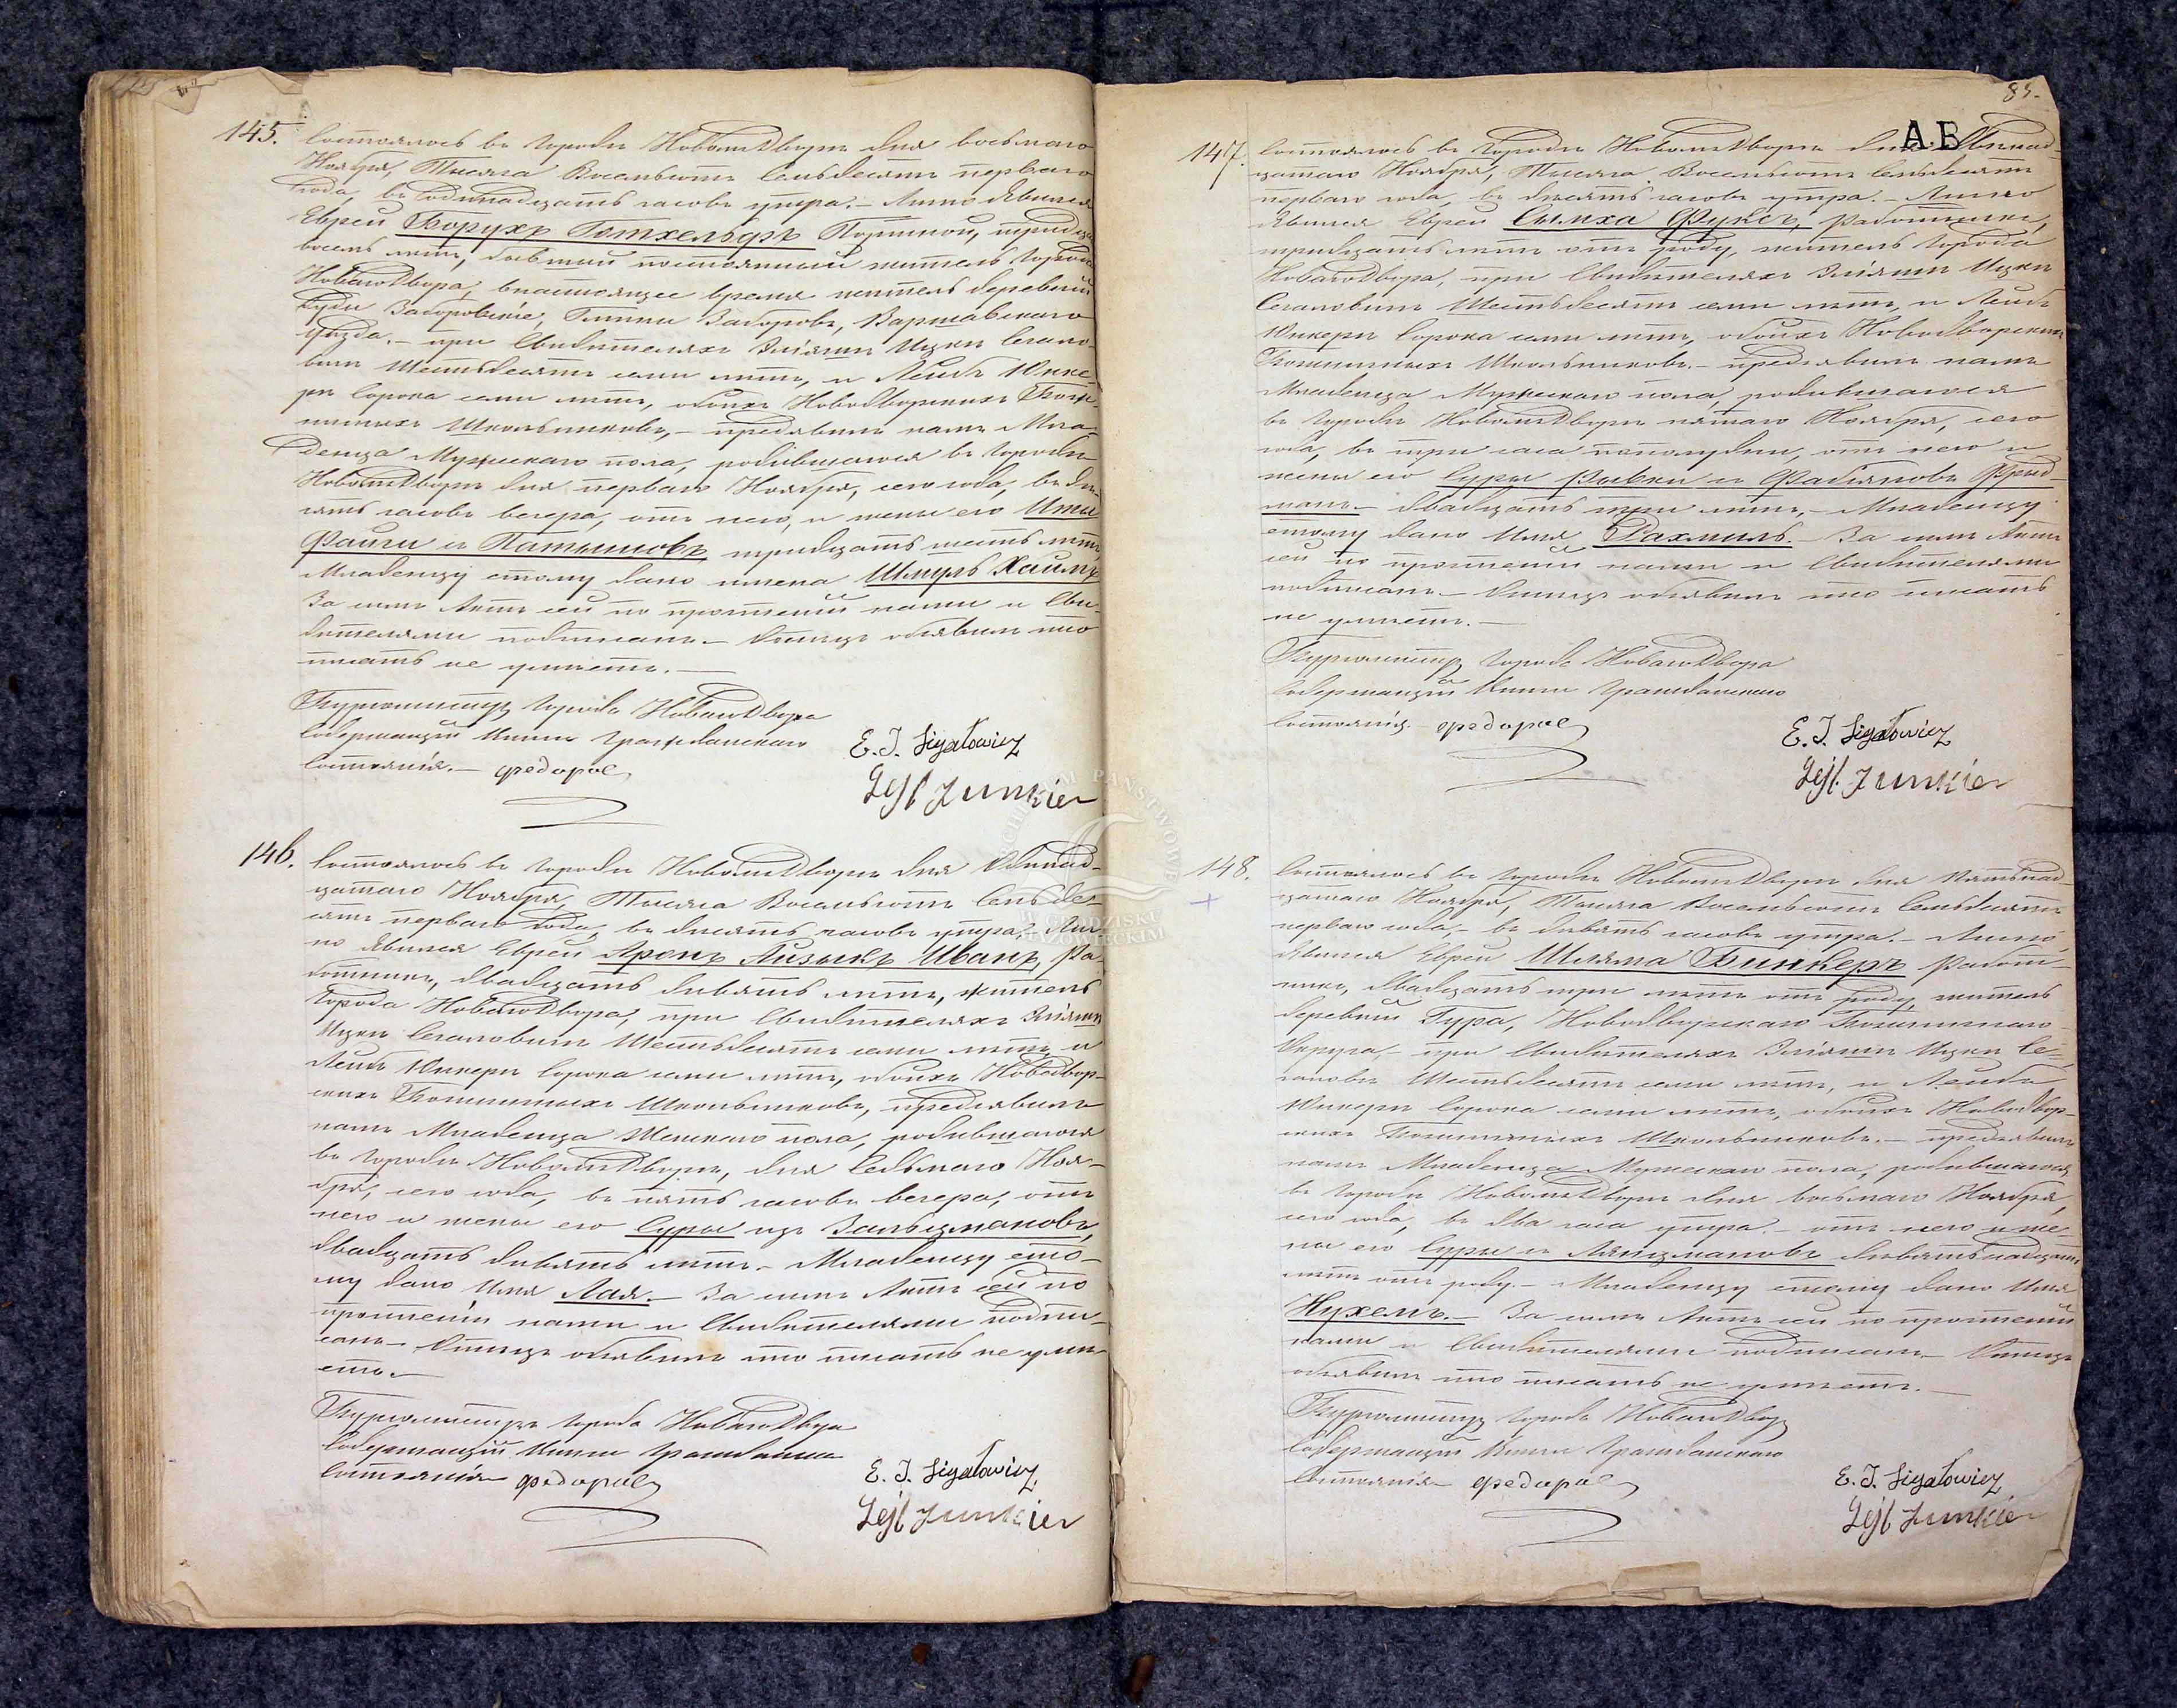 145. Состоялось въ Городѣ Новомъ-Дворѣ дня восьмаго
Ноября, Тысяча Восемьсотъ Семьдесятъ перваго
года, въ одинадцать часовъ утра. – Лично Явился
Еврей Борухъ Готхельфъ Портной, тридцать
восемь лѣтъ, бывшый постоянный житель Города
Новаго-Двора, внастоящее время житель деревни
Буды Заборовскіе, Гмины Заборовъ, Варшавскаго
уѣзда. – при Свидѣтеляхъ Эліяшѣ Ицкѣ Сегало-
вичѣ Шестьдесятъ семи лѣтъ, и Лейбѣ Юнке-
рѣ Сорока семи лѣтъ, обоихъ Новодворскихъ Бож-
ничныхъ Школьниковъ, – предъявилъ намъ Мла-
денца Мужескаго пола, родившагося въ Городѣ
Новомъ-Дворѣ дня перваго Ноября, сего года, въ де-
сять часовъ вечера, отъ него, и жены его
Файги изъ тридцать шесть лѣтъ
Младенцу этому дано имена Шмуль Хаимъ
За симъ Актъ сей по прочтеніи нами и Сви-
дѣтелями подписанъ. – Отецъ объявилъ что
писать не умѣетъ. –
Бургомистръ Города Новаго-Двора
Содержащій Книги Гражданскаго
Состоянія. –
E. J. Sigałowicz
Lejb Junkier
146. Состоялось въ Городѣ Новомъ-Дворѣ дня Одинад-
цатаго Ноября, Тысяча Восемьсотъ Семьде-
сятъ перваго года, въ десять часовъ утра, Лич-
но Явился Еврей Аронъ Айзыкъ Иванъ, Ра-
ботникъ, двадцать девять лѣтъ, житель
Города Новаго-Двора, при Свидѣтеляхъ Эліяшѣ
Ицкѣ Сегаловичѣ Шестьдесятъ семи лѣтъ, и
Лейбѣ Юнкерѣ Сорока семи лѣтъ, обоихъ Новодвор-
скихъ Божничныхъ Школьниковъ, предъявилъ
намъ Младенца Женскаго пола, родившагося
въ Городѣ Новомъ-Дворѣ, дня Седьмаго Ноя-
бря, сего года, въ пять часовъ вечера, отъ
него и жены его Суры изъ Зальцмановъ,
двадцать девять лѣтъ. – Младенцу это-
му дано Имя Лая. – За симъ Актъ сей по
прочтеніи нами и Свидѣтелями подпи-
санъ – Отецъ объявилъ что писать не умѣ-
етъ. –
Бургомистръ Города Новаго-Двора
Содержащій Книги Гражданскаго
Состоянія
E. J. Sigałowicz
Lejb Junkier
85.
A.B
147. Состоялось въ Городѣ Новомъ-Дворѣ дня Одинад-
цатаго Ноября, Тысяча Восемьсотъ Семьдесятъ
перваго года, въ десять часовъ утра. – Лично
Явился Еврей Сымха Фуксъ, Работникъ,
тридцать лѣтъ отъ роду, житель Города
Новаго-Двора, при Свидѣтеляхъ Эліяшѣ Ицкѣ
Сегаловичѣ Шестьдесятъ семи лѣтъ, и Лейбѣ
Юнкерѣ Сорока семи лѣтъ, обоихъ Новодворскихъ
Божничныхъ Школьниковъ. – предъявилъ намъ
Младенца Мужескаго пола, родившагося
въ Городѣ Новомъ-Дворѣ пятаго Ноября, сего
года, въ три часа пополудни, отъ него и
жены его Суры Рывки изъ Фабіановъ
двадцать три лѣтъ, – Младенцу
этому дано Имя Рахмиль. – За симъ Актъ
сей по прочтеніи нами и Свидѣтелями
подписанъ. – Отецъ объявилъ что писать
не умѣетъ. –
Бургомистръ Города Новаго-Двора
Содержащій Книги Гражданскаго
Состоянія. –
E. J. Sigałowicz
Lejb Junkier
148. Состоялось въ Городѣ Новомъ-Дворѣ дня Пятьнад-
цатаго Ноября, Тысяча Восемьсотъ Семьдесятъ
перваго года, – въ девять часовъ утра. – Лично
Явился Еврей Шляма Бинкеръ Работ-
никъ, двадцать три лѣтъ отъ роду, житель
деревни Гура, Новодворскаго Божничнаго
Округа, – при Свидѣтеляхъ Эліяшѣ Ицкѣ Се-
галовичѣ Шестьдесятъ семи лѣтъ, и Лейбѣ
Юнкерѣ Сорока семи лѣтъ, обоихъ Новодвор-
скихъ Божничныхъ Школьниковъ. – предъявилъ
намъ Младенца Мужескаго пола, родившагося
въ Городѣ Новомъ-Дворѣ дня восьмаго Ноября,
сего года, въ два часа утра. – отъ него и же-
ны его Суры изъ Лянцмановъ девятьнадцать
лѣтъ отъ роду. – Младенцу этому дано Имя
Нухемъ. – За симъ Актъ сей по прочтеніи
нами и Свидѣтелями подписанъ – Отецъ
объявилъ что писать не умѣетъ. –
Бургомистръ Города Новаго-Двора
Содержащій Книги Гражданскаго
Состоянія –
E. J. Sigałowicz
Lejb Junkier